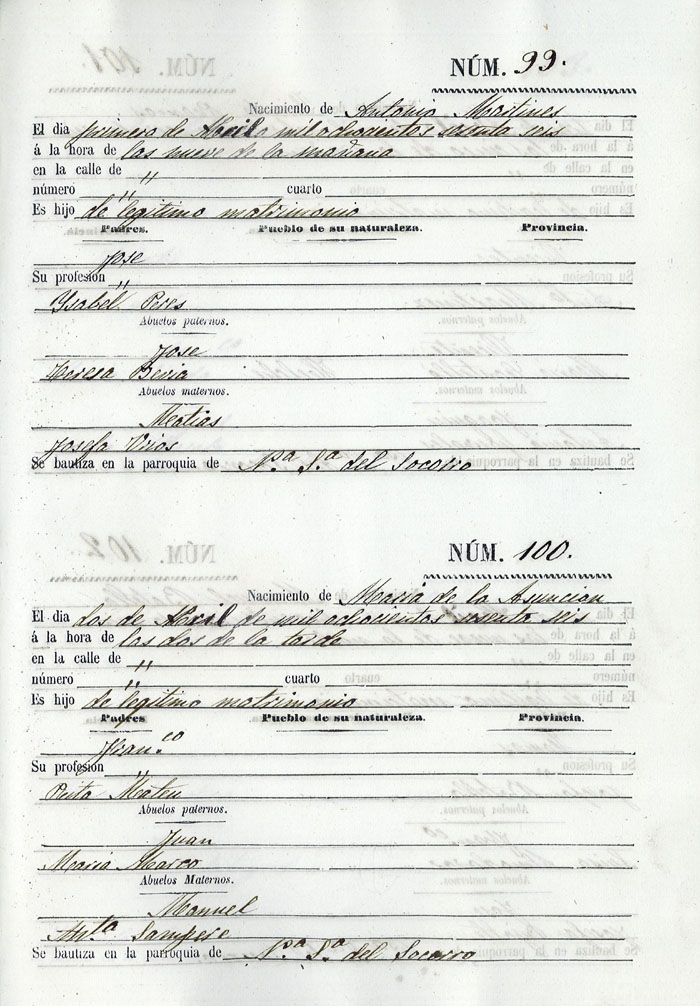 NÚM. 99.
Nacimiento de Antonio Martines
El dia primero de Abril mil ochocientos sesenta seis
á la hora de las nueve de la mañana
en la calle de "
número " cuarto
Es hijo de legitimo matrimonio
Padres. Pueblo de su naturaleza. Provincia.
Jose
Su profesion "
Ysabel Peres
Abuelos paternos.
Jose
Teresa Bevia
Abuelos maternos.
Matias
Josefa
Se bautiza en la parroquia de N.ª S.ª del Socorro
NÚM. 100.
Nacimiento de Maria de la Asuncion
El dia dos de Abril de mil ochocientos sesenta seis
á la hora de las dos de la tarde
en la calle de "
número " cuarto
Es hijo de legitimo matrimonio
Padres Pueblo de su naturaleza. Provincia.
Fran.co
Su profesion "
Mateu
Abuelos paternos.
Juan
Maria Marco
Abuelos Maternos.
Manuel
Ant.a Sampere
Se bautiza en la parroquia de N.ª S.ª del Socorro